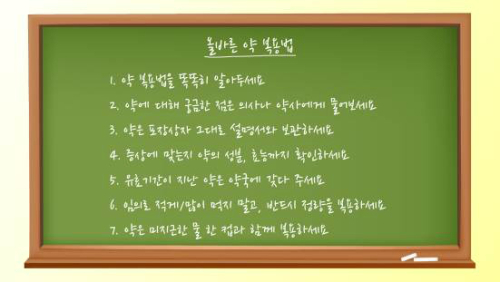 올바른 약 복용법
1. 약 복용법을 똑똑히 알아두세요
2. 약에 대해 궁금한 점은 의사나 약사에게 물어보세요
3. 약은 포장상자 그대로 설명서와 보관하세요
4. 증상에 맞는지 약의 성분, 효능까지 확인하세요
5. 유효기간이 지난 약은 약국에 갖다 주세요
6. 임의로 적게/많이 먹지 말고, 반드시 정량을 복용하세요
7. 약은 미지근한 물 한 컵과 함께 복용하세요